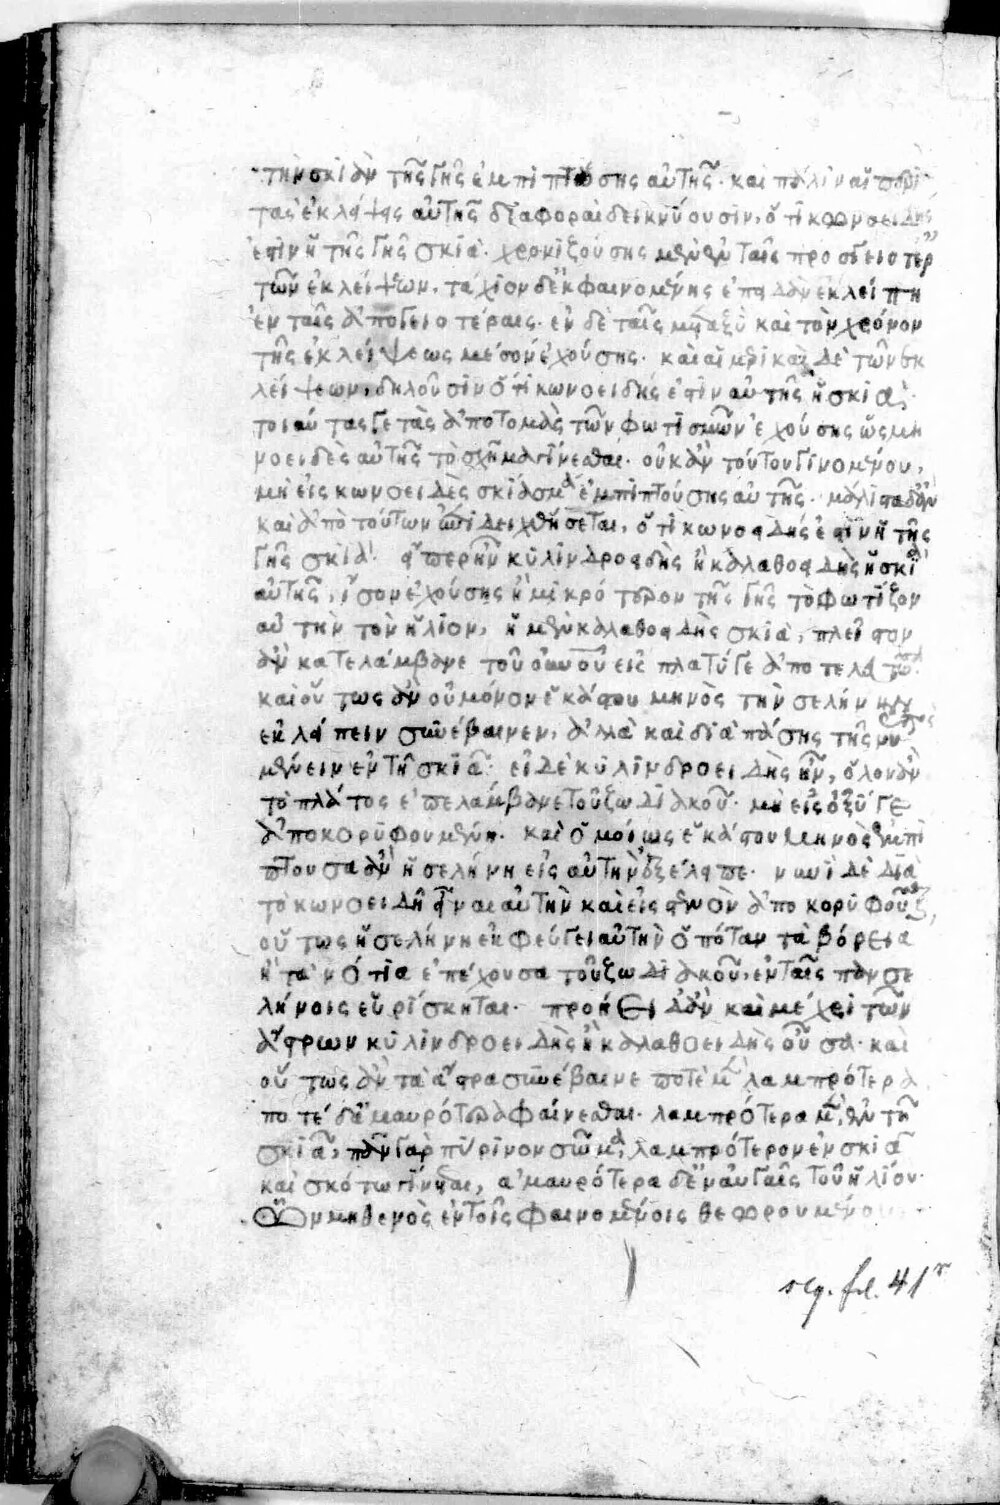 τὴν σκιὰν τῆς γῆς ἐμπιπτώσης αὐτῆς. καὶ πάλιν αἱ περὶ
τὰς ἐκλήψης αὐτῆς διαφοραὶ δεικνύουσιν, ὅτι κωνοειδής
ἐστὶν ἡ τῆς γῆς σκιά. χρονιζούσης μὲν ἐν ταῖς προσγειοτέρ
των ἐκλείψεων. τάχιον δὲ ἐκφαινομένης ἐπειδὰν ἐκλείπῃ
ἐν ταῖς ἀπογειοτέραις. ἐν δὲ ταῖς μεταξὺ καὶ τὸν χρόνον
τῆς ἐκλείψεως μέσον ἐχούσης. καὶ αἱ μερικαὶ δὲ τῶν ἐκ
λείψεων, δηλοῦσιν ὅτι κωνοειδής ἐστιν αὐτῆς ἡ σκιά.
τοιαύτας γε τὰς ἀποτομὰς τῶν φωτισμῶν ἐχούσης ὡς μη
νοειδὲς αὐτῆς τὸ σχῆμα γίνεσθαι. οὐκ ἂν τούτου γινομένου,
μὴ εἰς κωνοειδὲς σκίασμα ἐμπιπτούσης αὐτῆς. μάλιστα δ' ἂν
καὶ ἀπὸ τούτων ἐπιδειχθήσεται, ὅτι κωνοειδής ἐστιν ἡ τῆς
γῆς σκιά. εἴπερ ἦν κυλινδροειδὴς ἢ καλαθοειδὴς ἡ σκιὰ
αὐτῆς, ἴσον ἐχούσης ἢ μικρότερον τῆς γῆς τὸ φωτίζον
αὐτὴν τὸν ἥλιον, ἡ μὲν καλαθοειδὴς σκιὰ, πλεῖστον
ἂν κατελάμβανε τοῦ οὐνοῦ εἰς πλατύ γε ἀποτελευτῶσα.
καὶ οὕτως ἂν οὐ μόνον ἑκάστου μηνὸς τὴν σελήνην
ἐκλείπειν συνέβαινεν, ἀλλὰ καὶ διὰ πάσης τῆς νυκτὸς
μένειν ἐν τῇ σκιᾷ. εἰ δὲ κυλινδροειδὴς ἦν, ὅλον ἂν
τὸ πλάτος ἐπελάμβανε τοῦ ζωδιακοῦ. μὴ εἰς ὀξύ γε
ἀποκορυφουμένη. καὶ ὁμοίως ἑκάστου μηνὸς ἐμπί
πτουσα ἂν ἡ σελήνη εἰς αὐτὴν ἐξέλειπε. νυνὶ δὲ διὰ
τὸ κωνοειδῆ εἶναι αὐτὴν καὶ εἰς στενὸν ἀποκορυφοῦσθαι,
οὕτως ἡ σελήνη ἐκφεύγει αὐτὴν ὁπόταν τὰ βόρεια
ἢ τὰ νότια ἐπέχουσα τοῦ ζωδιακοῦ, ἐν ταῖς πανσε
λήνοις εὑρίσκηται. προήει δ' ἂν καὶ μέχρι τῶν
ἄστρων κυλινδροειδὴς ἢ καλαθοειδὴς οὖσα. καὶ
οὕτως ἂν τὰ ἄστρα συνέβαινε ποτὲ μὲν λαμπρότερα
ποτέ δ' ἀμαυρότερα φαίνεσθαι. λαμπρότερα μὲν, ἐν τῇ
σκιᾷ, πᾶν γὰρ πύρινον σῶμα, λαμπρότερον ἐν σκιᾷ
καὶ σκότω γίνεται, ἀμαυρότερα δὲ ἐν αὐγαῖς τοῦ ἡλίου.
Ὧν μηθενὸς ἐν τοῖς φαινομένοις θεωρουμένου
seq. fol. 41r